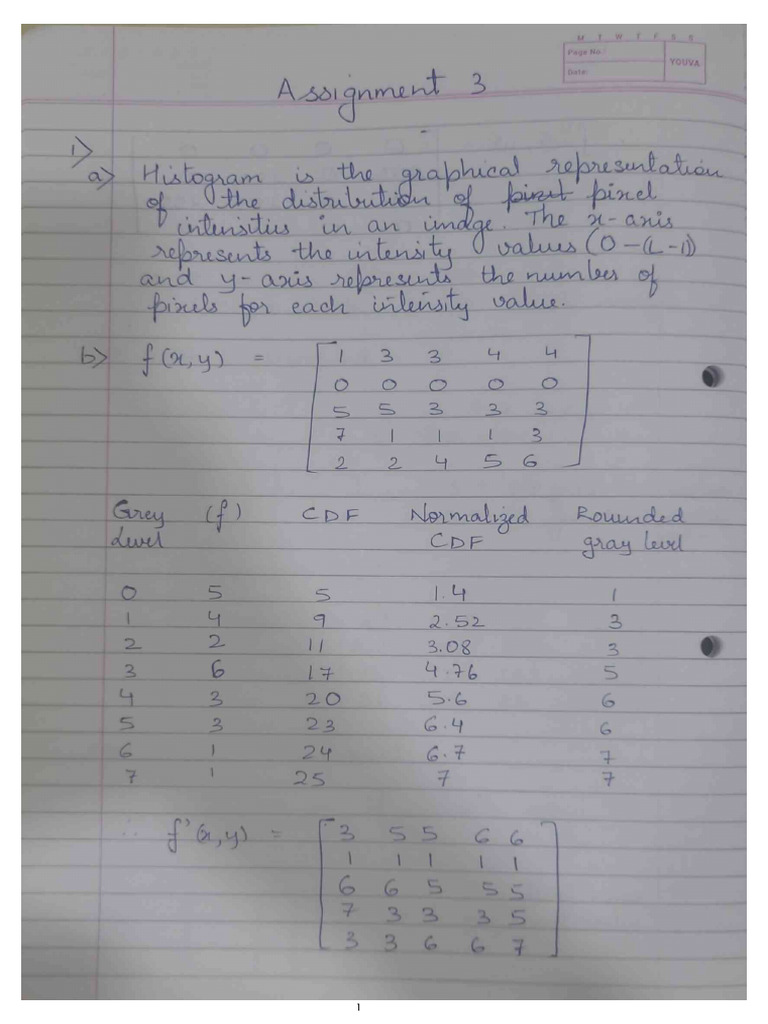 M T W T F S S
Page No.:
YOUVA
Date:
Assignment 3
1)
a) Histogram is the graphical representation
of the distribution of pixel
intensities in an image. The x-axis
represents the intensity values (0-(L-1))
and y-axis represents the number of
pixels for each intensity value.
b) f(x,y) =
1 3 3 4 4
0 0 0 0 0
5 5 3 3 3
7 1 1 1 3
2 2 4 5 6
Grey (f) CDF Normalized Rounded
Level CDF gray level
0 5 5 1.4 1
1 4 9 2.52 3
2 2 11 3.08 3
3 6 17 4.76 5
4 3 20 5.6 6
5 3 23 6.4 6
6 1 24 6.7 7
7 1 25 7 7
∴ f'(x,y) =
3 5 5 6 6
1 1 1 1 1
6 6 5 5 5
7 3 3 3 5
3 3 6 6 7
1